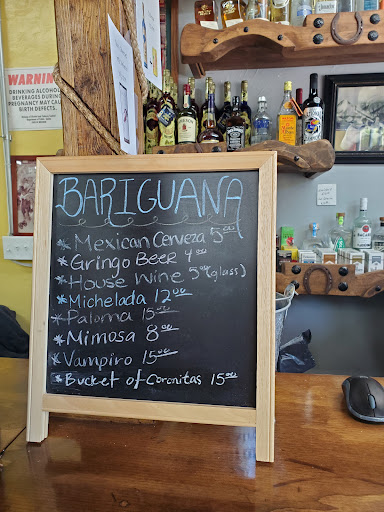 WARNING
DRINKING ALCOHOLIC
BEVERAGES DURING
PREGNANCY MAY CAUSE
BIRTH DEFECTS.
BARIGUANA
* Mexican Cerveza 5.00
* Gringo Beer 4.00
* House Wine 5.00 (glass)
* Michelada 12.00
* Paloma 15.00
* Mimosa 8.00
* Vampiro 15.00
* Bucket of Coronitas 15.00